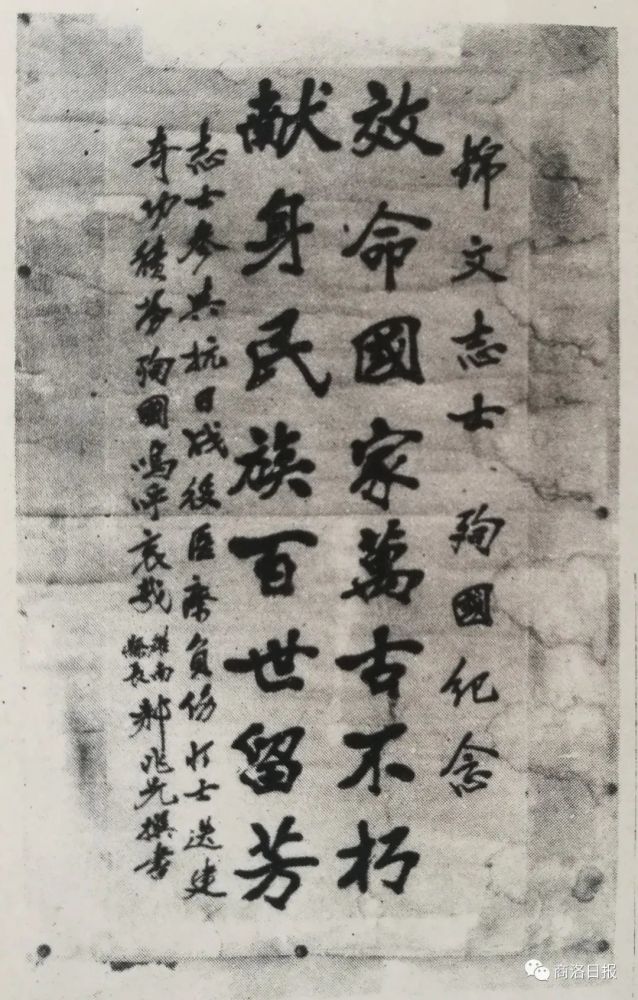 文志士 殉國纪念
效命國家萬古不朽
献身民族百世留芳
志士参與抗日战役医療負伤将士迭建
奇功積劳殉國嗚呼哀哉 雒南縣長 郝兆先撰書
商洛日报